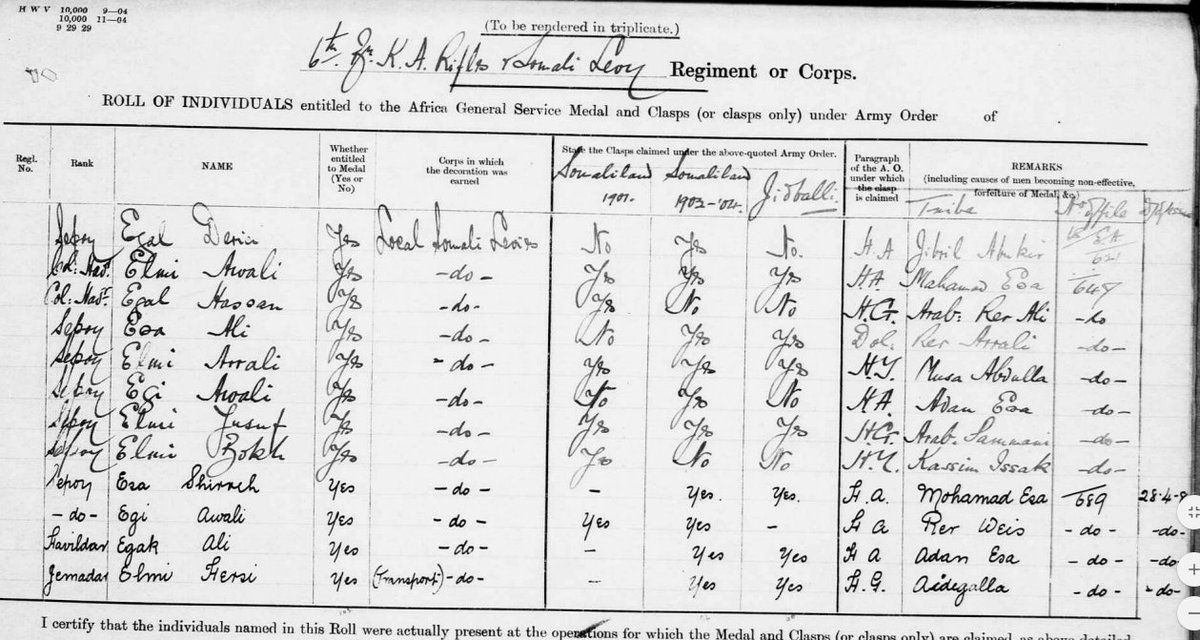 H W V 10,000 9—04
10,000 11—04
9 29 29
(To be rendered in triplicate.)
6th Bn K. A. Rifles & Somali Levy Regiment or Corps.
ROLL OF INDIVIDUALS entitled to the Africa General Service Medal and Clasps (or clasps only) under Army Order of
Regl. No. Rank NAME Whether entitled to Medal (Yes or No) Corps in which the decoration was earned State the Clasps claimed under the above-quoted Army Order. Paragraph of the A. O. under which the clasp is claimed REMARKS (including causes of men becoming non-effective, forfeiture of Medal, &c.)
Somaliland 1901. Somaliland 1902-'04. Jidballi. Tribe No of file
Sepoy Egal Deria Yes Local Somali Levies No Yes No. H.A Jibril Abukir EA 621
Col: Hav. Elmi Awali Yes -do- Yes Yes Yes H.A. Mahamad Esa 649
Col: Havr. Egal Hassan Yes -do- Yes No No H.G. Arab: Rer Ali -do
Sepoy Esa Ali Yes -do- No Yes Yes Dol: Rer Arrali -do-
Sepoy Elmi Arrali Yes -do- Yes Yes Yes H.Y. Musa Abdulla -do-
Sepoy Egi Awali Yes -do- No Yes No H.A Adan Esa -do-
Sepoy Elmi Jusuf Yes -do- Yes Yes Yes H.G. Arab. Sammani -do-
Sepoy Elmi Bokh Yes -do- Yes No No H.Y. Kassim Issak -do-
Sepoy Esa Shirreh Yes -do- - Yes. Yes. H.a. Mohamad Esa 689 28.4.0
-do- Egi Awali Yes -do- Yes Yes - H a Rer Weis -do- -do-
Havildar Egak Ali Yes -do- - Yes Yes H A Adan Esa -do- -do-
Jemadar Elmi Hersi Yes (Transport)-do- - Yes Yes H.G. Aidegalla -do- -do-
I certify that the individuals named in this Roll were actually present at the operations for which the Medal and Clasps (or clasps only) are claimed as above detailed